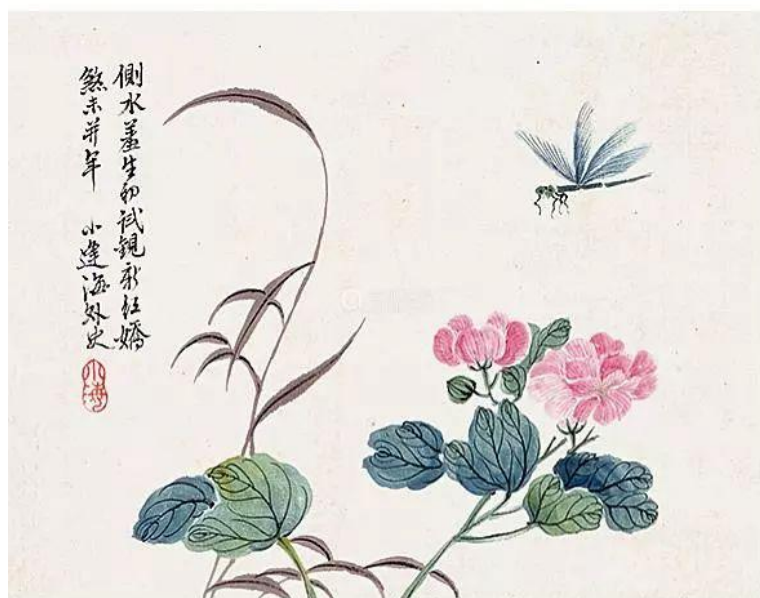 側水羞生初試靚新紅嬌
煞未并年 小蓬海外史
小海